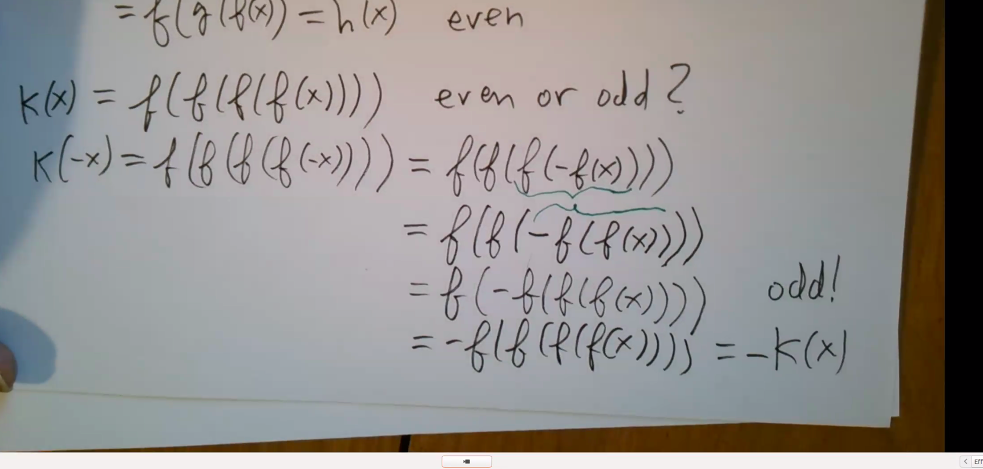 = f(g(f(x)) = h(x) even
k(x) = f(f(f(f(x)))) even or odd?
k(-x) = f(f(f(f(-x)))) = f(f(f(-f(x))))
= f(f(-f(f(x))))
= f(-f(f(f(x)))) odd!
= -f(f(f(f(x)))) = -k(x)